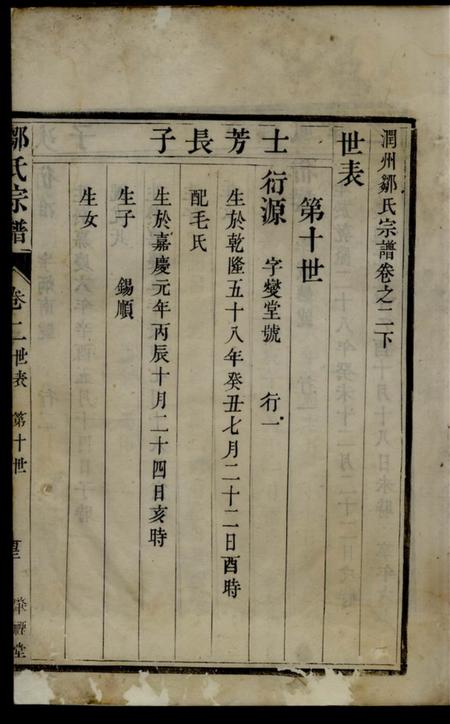 潤州鄒氏宗譜卷之二下
世表
第十世
士芳長子
衍源 字燮堂號 行一
生於乾隆五十八年癸丑七月二十二日酉時
配毛氏
生於嘉慶元年丙辰十月二十四日亥時
生子 錫順
生女
鄒氏宗譜 卷二 世表 第十世 堂